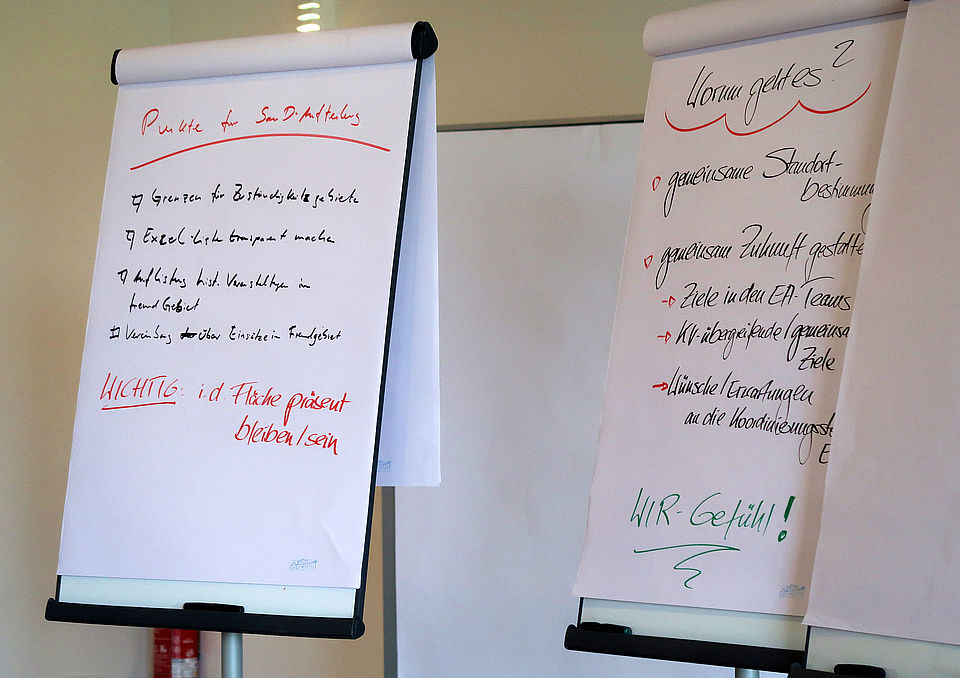 Punkte für SanD-Aufteilung
Grenzen für Zuständigkeitsgebiete
Excel-Liste transparent machen
Auflistung hist. Veranstaltungen im
fremdGebiet
über Einsätze im Fremdgebiet
WICHTIG: i.d. Fläche präsent
bleiben/sein
Worum geht es?
gemeinsame Standort-
bestimmung
gemeinsam Zukunft gestalte
→ Ziele in den EA-Teams
→ KV-übergreifende/gemeinsa
Ziele
→ Wünsche/Erwartungen
an die Koordinierungsste
E
WIR-Gefühl!